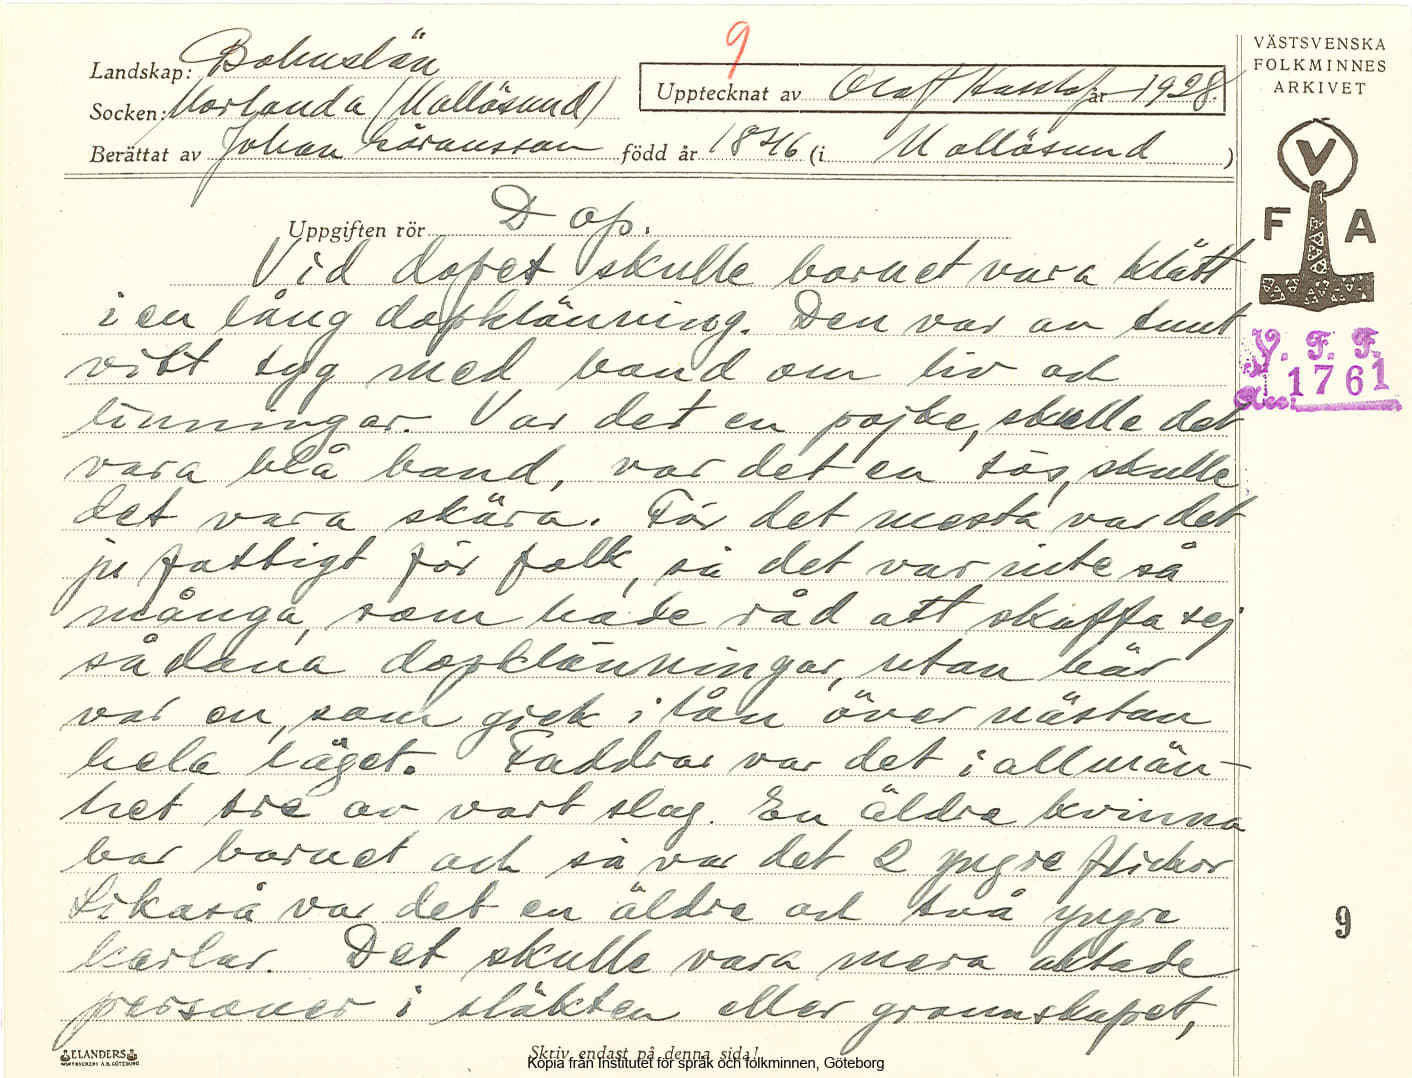 9
VÄSTSVENSKA
FOLKMINNES
ARKIVET
Landskap: Bohuslän
Upptecknat av Olof Hasslöf år 1928.
Socken: Morlanda (Mollösund)
Berättat av Johan Göransson född år 1846 (i Mollösund)
V
F A
Uppgiften rör Dop.
Vid dopet skulle barnet vara klätt
i en lång dopklänning. Den var av tunt
vitt tyg med band om liv och
linningar. Var det en pojke, skulle det
vara blå band, var det en tös, skulle
det vara skära. För det mesta var det
ju fattigt för folk, så det var inte så
många, som hade råd att skaffa sej
sådana dopklänningar, utan här
var en, som gick i lån över nästan
hela läget. Faddrar var det i allmän-
het tre av vart slag. En äldre kvinna
bar barnet och så var det 2 yngre flickor
Likaså var det en äldre och två yngre
karlar. Det skulle vara mera aktade
personer i släkten eller grannskapet,
V. F. F.
1761
9
ELANDERS
BOKTRYCKERI A.B. GÖTEBORG
Skriv endast på denna sida!
Kopia från Institutet för språk och folkminnen, Göteborg